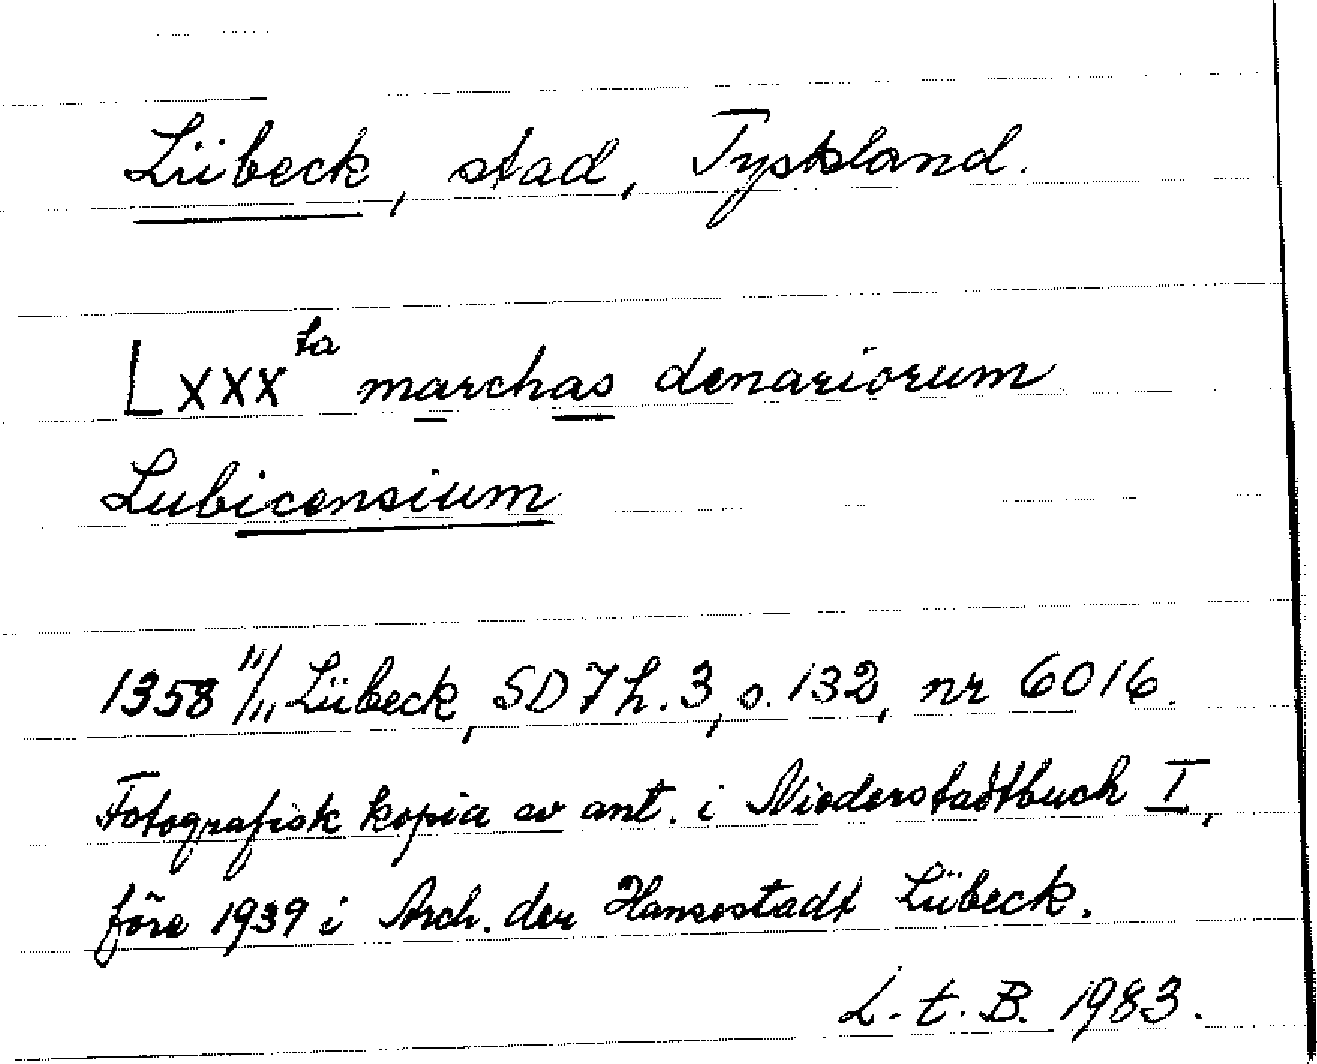 Lübeck, stad, Tyskland.
Lxxx^ta marchas denariorum
Lubicensium
1358 11/11 Lübeck, SD 7 h. 3, s. 132, nr 6016.
Fotografisk kopia av ant. i Niederstadtbuch I,
före 1939 i Arch. der Hansestadt Lübeck.
L. t. B. 1983.